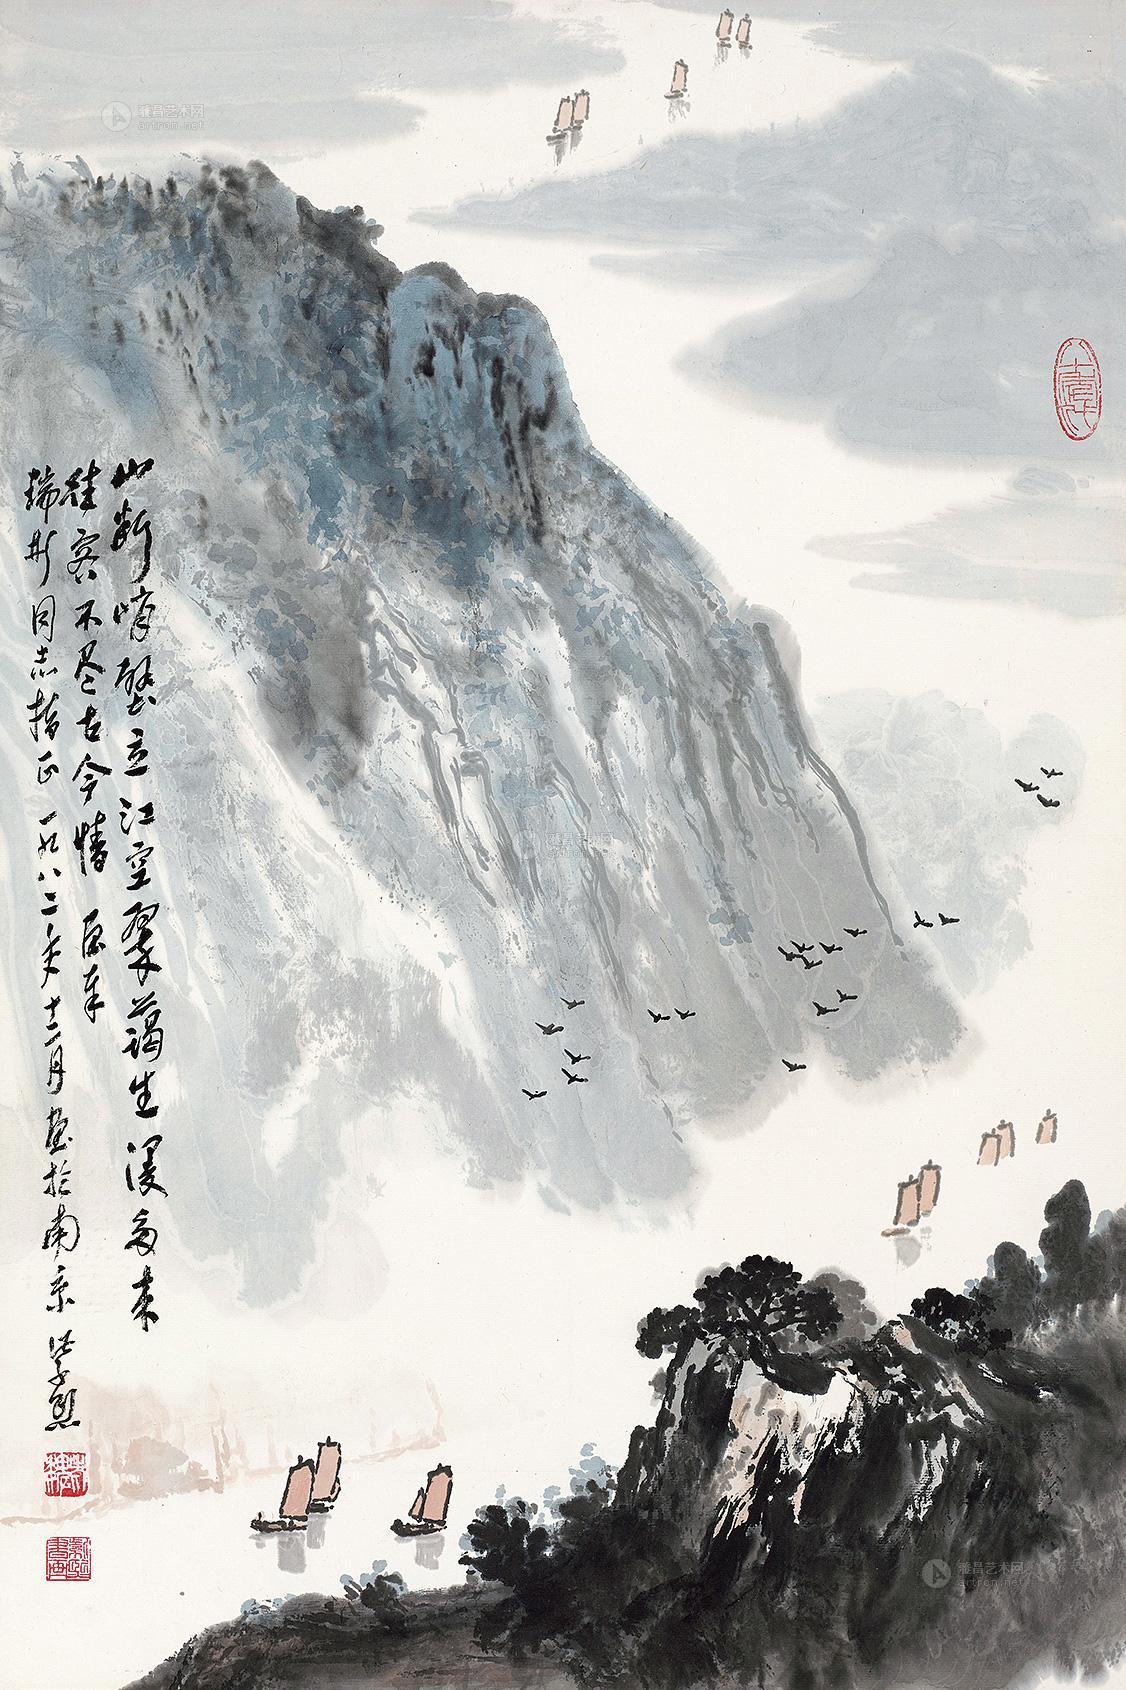 山断峭壁立江空翠蔼生漫多来
往客不尽古今情
瑞彬同志指正一九八二年十二月画于南京
雅昌艺术网
artron.net
雅昌艺术网
artron.net
雅昌艺术网
artron.net